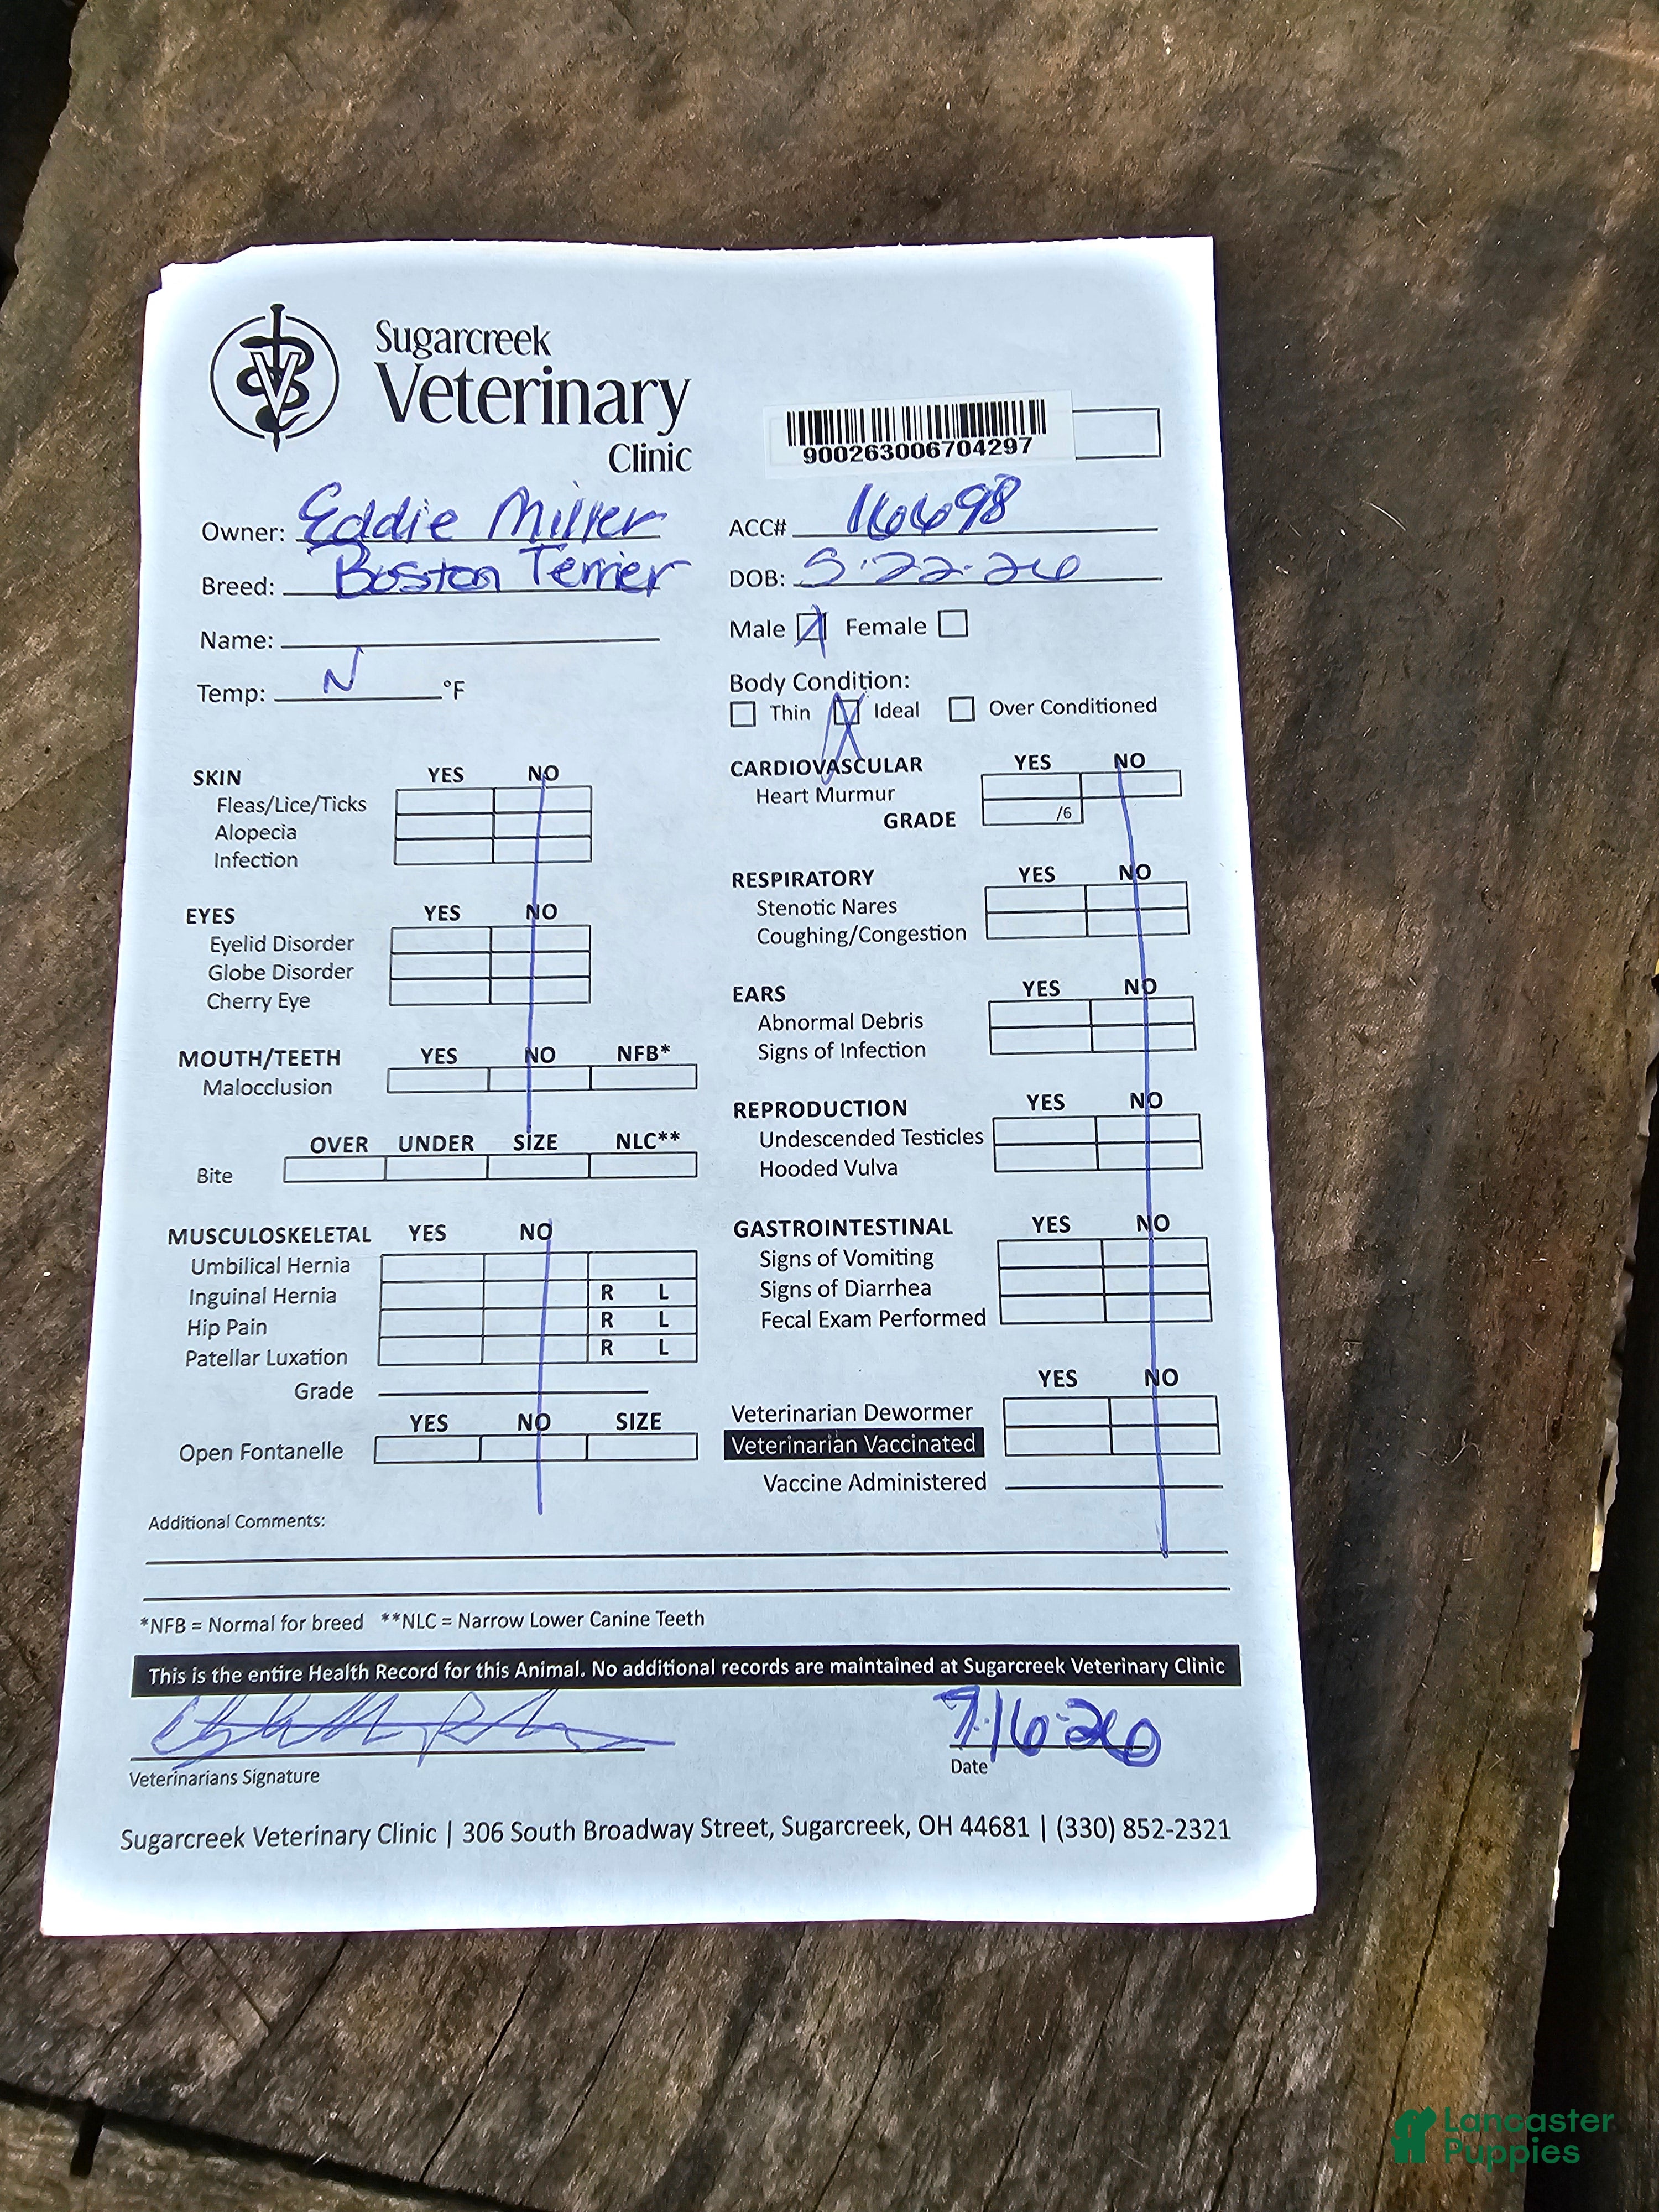 Sugarcreek
Veterinary
Clinic
900263006704297
Owner: Eddie Miller
ACC# 16698
Breed: Boston Terrier
DOB: 5.22.26
Name:
Male Female
Temp: N °F
Body Condition:
Thin Ideal Over Conditioned
SKIN YES NO
Fleas/Lice/Ticks
Alopecia
Infection
EYES YES NO
Eyelid Disorder
Globe Disorder
Cherry Eye
MOUTH/TEETH YES NO NFB*
Malocclusion
OVER UNDER SIZE NLC**
Bite
MUSCULOSKELETAL YES NO
Umbilical Hernia
Inguinal Hernia R L
Hip Pain R L
Patellar Luxation R L
Grade
YES NO SIZE
Open Fontanelle
CARDIOVASCULAR YES NO
Heart Murmur
GRADE /6
RESPIRATORY YES NO
Stenotic Nares
Coughing/Congestion
EARS YES NO
Abnormal Debris
Signs of Infection
REPRODUCTION YES NO
Undescended Testicles
Hooded Vulva
GASTROINTESTINAL YES NO
Signs of Vomiting
Signs of Diarrhea
Fecal Exam Performed
YES NO
Veterinarian Dewormer
Veterinarian Vaccinated
Vaccine Administered
Additional Comments:
*NFB = Normal for breed **NLC = Narrow Lower Canine Teeth
This is the entire Health Record for this Animal. No additional records are maintained at Sugarcreek Veterinary Clinic
7.16.26
Veterinarians Signature
Date
Sugarcreek Veterinary Clinic | 306 South Broadway Street, Sugarcreek, OH 44681 | (330) 852-2321
Lancaster
Puppies